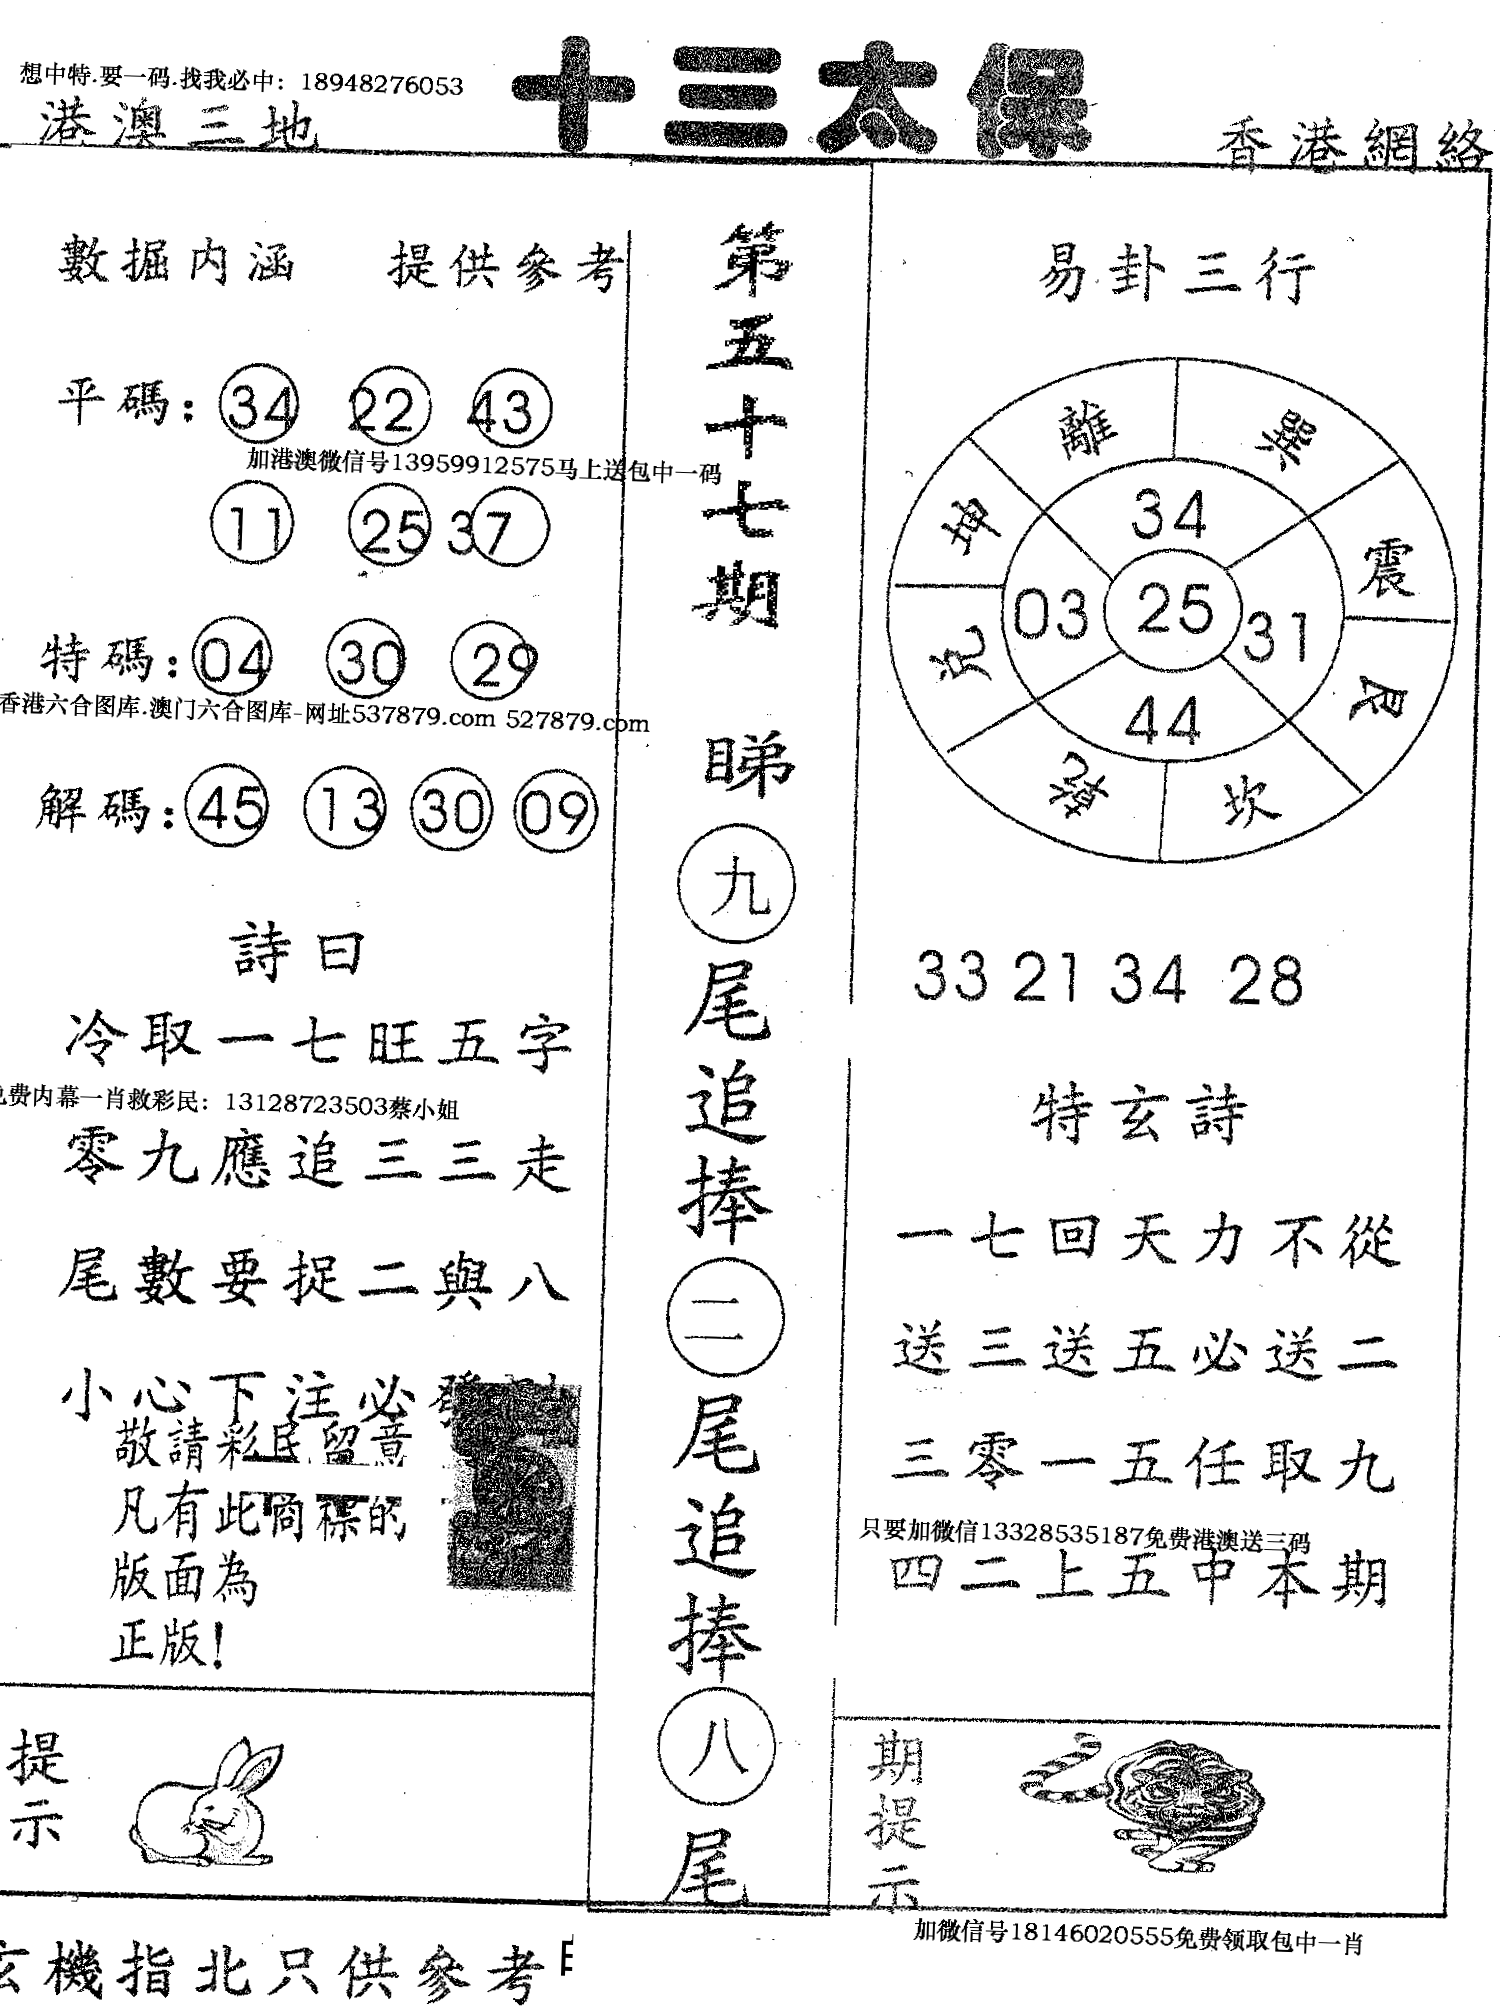 想中特.要一码.找我必中：18948276053
十三太保
港澳三地
香港網絡
數掘内涵 提供參考
平碼：34 22 43
加港澳微信号13959912575马上送包中一码
11 25 37
特碼：04 30 29
香港六合图库.澳门六合图库-网址537879.com 527879.com
解碼：45 13 30 09
詩曰
冷取一七旺五字
免费内幕一肖救彩民：13128723503蔡小姐
零九應追三三走
尾數要捉二與八
小心下注必發
敬請彩民留意
凡有此商標的
版面為
正版！
提示
第五十七期
睇九尾追捧二尾追捧八尾
易卦三行
離
巽
坤
震
兌
艮
坎
34
03 25 31
44
33 21 34 28
特玄詩
一七回天力不從
送三送五必送二
三零一五任取九
只要加微信13328535187免费港澳送三码
四二上五中本期
期提示
加微信号18146020555免费领取包中一肖
玄機指北只供參考